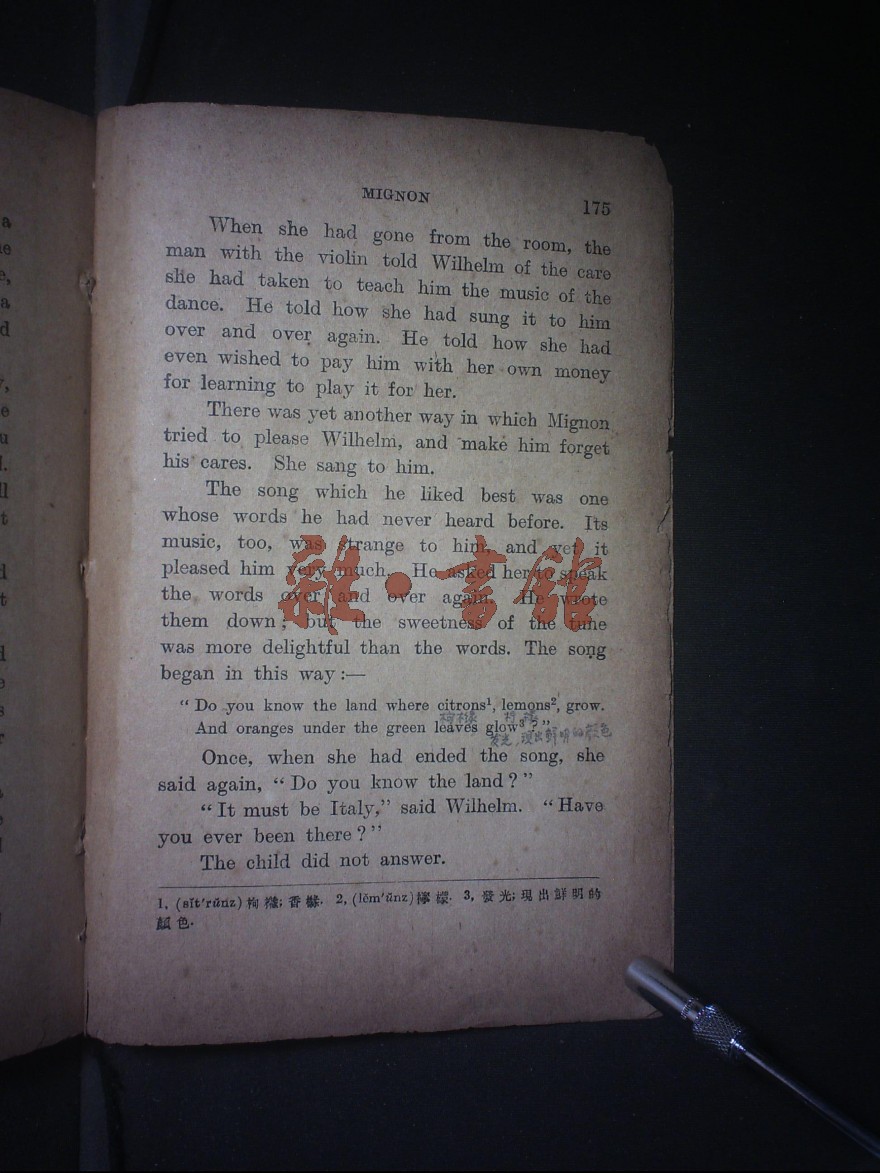 MIGNON
175
When she had gone from the room, the
man with the violin told Wilhelm of the care
she had taken to teach him the music of the
dance. He told how she had sung it to him
over and over again. He told how she had
even wished to pay him with her own money
for learning to play it for her.
There was yet another way in which Mignon
tried to please Wilhelm, and make him forget
his cares. She sang to him.
The song which he liked best was one
whose words he had never heard before. Its
music, too, was strange to him, and yet it
pleased him very much. He asked her to speak
the words over and over again. He wrote
them down; but the sweetness of the tune
was more delightful than the words. The song
began in this way:—
“Do you know the land where citrons¹, lemons², grow.
And oranges under the green leaves glow³?”
发光,现出鲜明的颜色
Once, when she had ended the song, she
said again, “Do you know the land?”
“It must be Italy,” said Wilhelm. “Have
you ever been there?”
The child did not answer.
1, (sĭt'rŭnz) 枸櫞; 香櫞. 2, (lĕm'ŭnz) 檸檬. 3, 發光; 現出鮮明的
顏色.
雜·書館